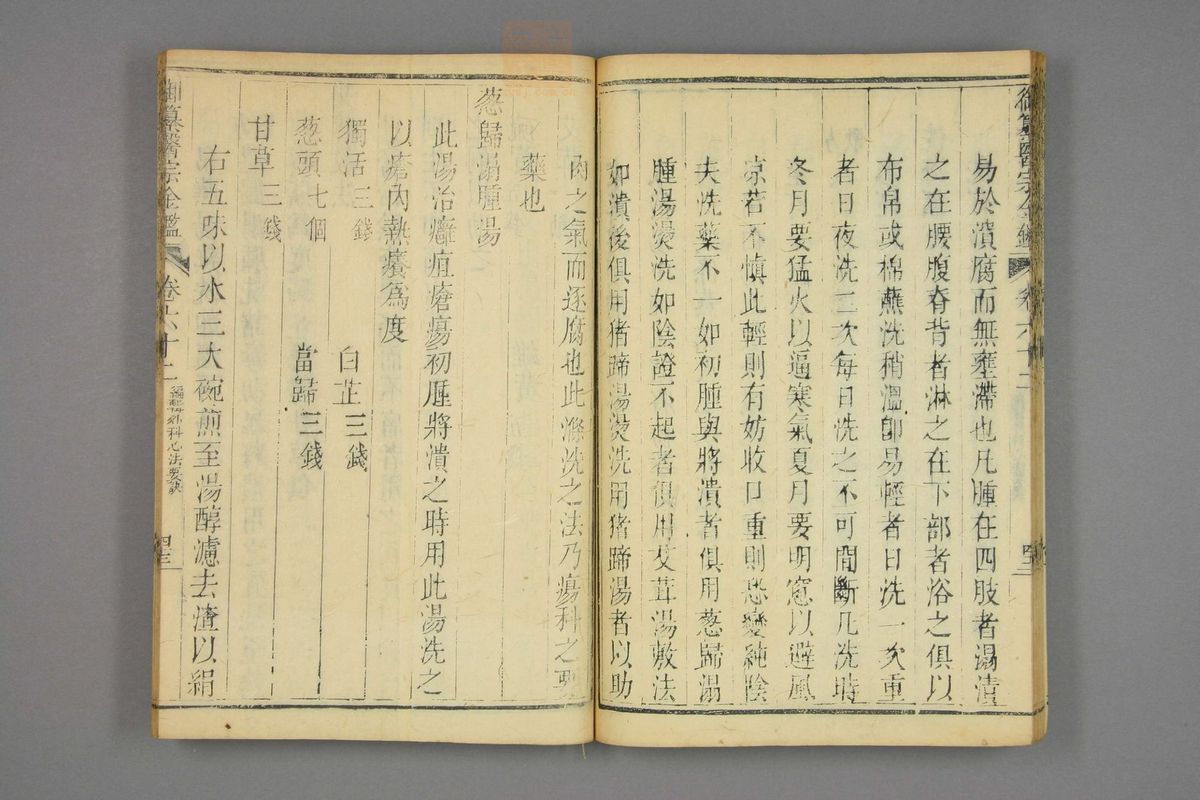 御纂醫宗金鑑
卷六十二
易於潰腐而無壅滯也凡腫在四肢者溻漬
之在腰腹脊背者淋之在下部者浴之俱以
布帛或棉蘸洗稍溫即易輕者日洗一次重
者日夜洗二次每日洗之不可間斷凡洗時
冬月要猛火以逼寒氣夏月要明窻以避風
凉若不慎此輕則有妨收口重則恐變純陰
夫洗藥不一如初腫與將潰者俱用葱歸溻
腫湯燙洗如陰證不起者俱用艾茸湯敷法
如潰後俱用猪蹄湯燙洗用猪蹄湯者以助
肉之氣而逐腐也此滌洗之法乃瘍科之要
藥也
葱歸溻腫湯
此湯治癰疽瘡瘍初腫將潰之時用此湯洗之
以瘡內熱癢爲度
獨活三錢 白芷三錢
葱頭七個 當歸三錢
甘草三錢
右五味以水三大碗煎至湯醇濾去渣以絹
御纂醫宗金鑑
卷六十二
編輯外科心法要訣
四三